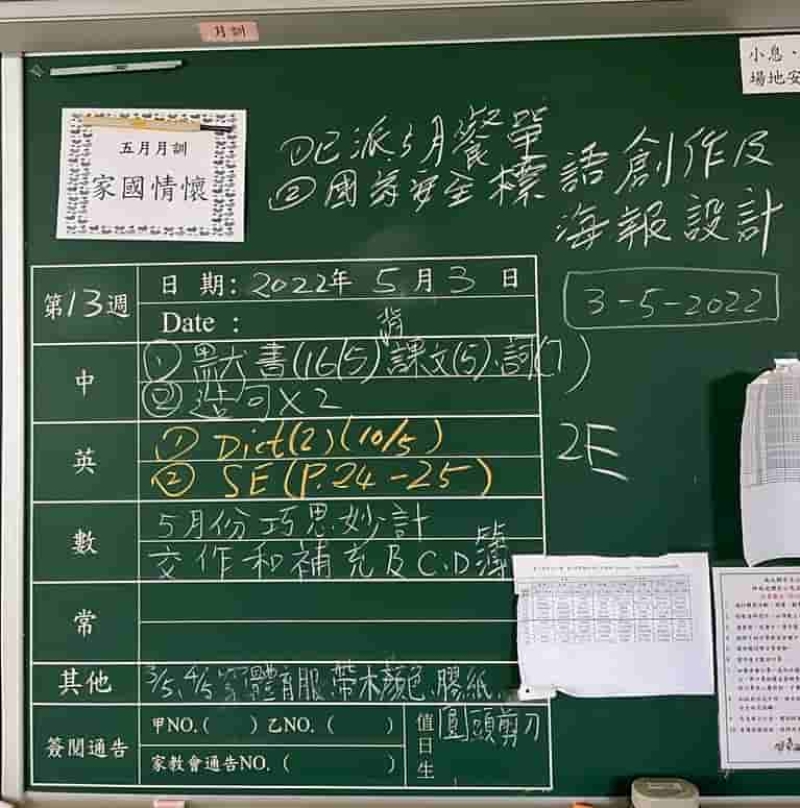 月訓
小息、
場地安
五月月訓
家國情懷
①已派5月餐單
②國家安全標語創作及
海報設計
第13週
日 期: 2022年 5月3日
Date :
3-5-2022
中
背
①黑大書(16/5)課文(5)、詞(7)
②造句X2
英
① Dict(2)(10/5)
② SE(P.24-25)
2E
數
5月份巧思妙計
交作和補充及C.D簿
常
其他
3/5、4/5穿體育服、帶木顏色、膠紙、
圓頭剪刀
簽閱通告
甲NO.( )乙NO.( )
家教會通告NO.( )
值日生